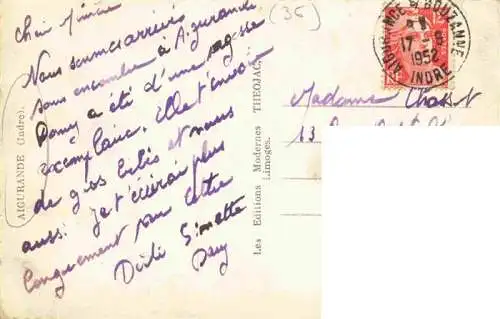 Nous sommes arrivés
sans encombre à Aigurande
Dany a été d'une sagesse
exemplaire. Elle t'envoie
de gros bibis et nous
aussi. Je t'écrirai plus
longuement sur lettre
Simette
Dany
AIGURANDE (Indre).
Les Editions Modernes THEOJAC,
Limoges.
(36)
17 - 8
1952
INDRE
Madame
13